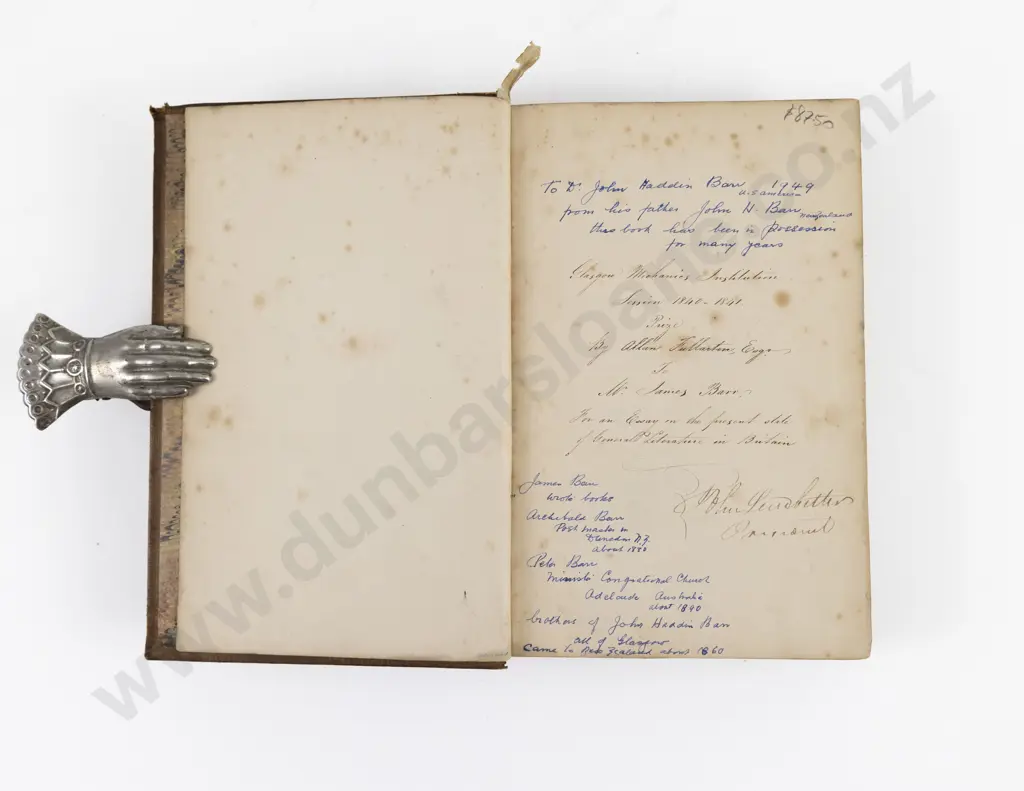 $87.50
To Dr. John Haddin Barr 1949
U.S. america
from his father John H. Barr
Newzealand
this book has been in possession
for many years
Glasgow Mechanics Institution
Session 1840-1841
Prize
By Allan Fullarton, Esqr.
To
Mr. James Barr
For an Essay on the present state
of General Literature in Britain
John Leadbetter
James Barr
wrote books
Archibald Barr
Post master in
Dunedin N.Z.
about 1880
Peter Barr
Congrational Church
Adelaide Australia
about 1890
brothers of John Haddin Barr
all of Glasgow
Came to New Zealand about 1860
www.dunbarsloane.co.nz